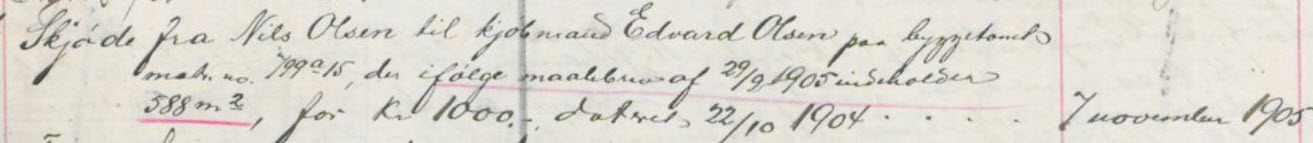 Skjøde fra Nils Olsen til kjøbmand Edvard Olsen paa byggetomt
matr. no. 799 a 15, der ifølge maalebrev af 29/9 1905 indeholder
588 m², for Kr 1000.-, dateret 22/10 1904 . . . . 7 november 1905